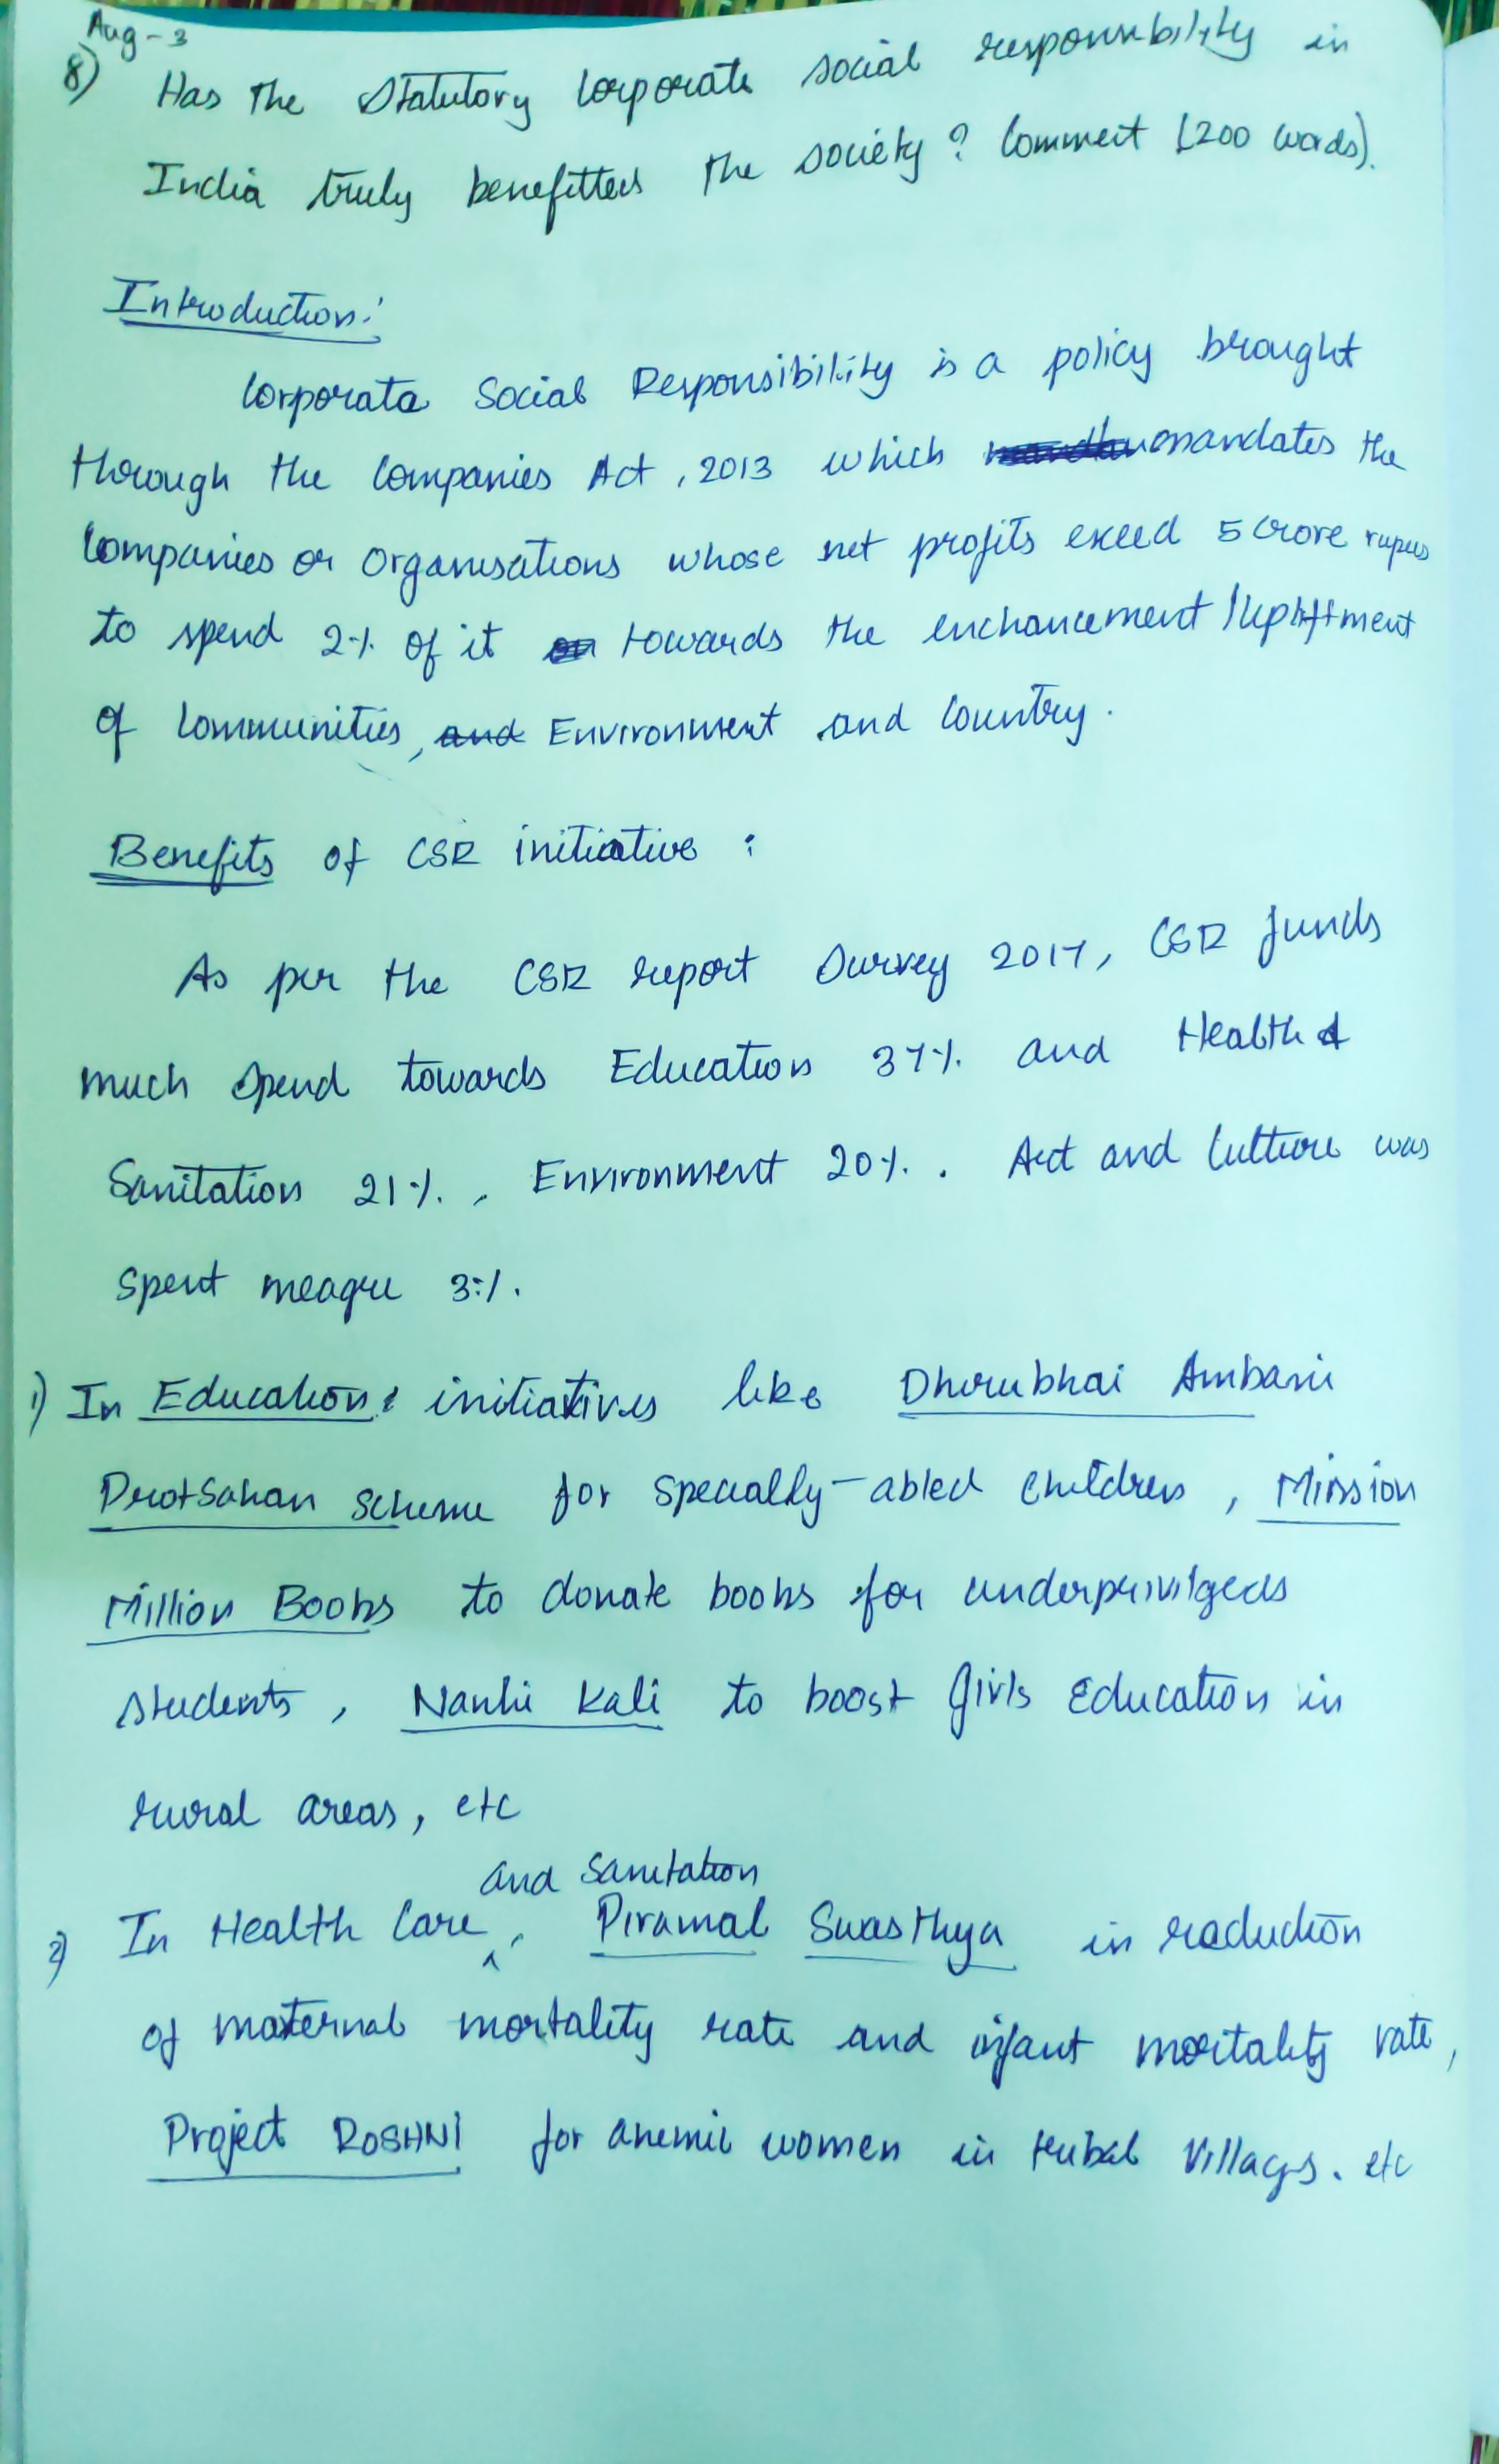 Aug-3
8) Has the Statutory Corporate social responsibility in
India truly benefitted the society? Comment (200 words).
Introduction:
Corporate Social Responsibility is a policy brought
through the Companies Act, 2013 which mandates the
Companies or Organisations whose net profits exceed 5 Crore rupees
to spend 2% of it towards the enchancement/upliftment
of Communities, Environment and Country.
Benefits of CSR initiative :
As per the CSR report Survey 2017, CSR funds
much spend towards Education 37% and Health &
Sanitation 21%, Environment 20%. Art and Culture was
spent meagre 3%.
1) In Education: initiatives like Dhirubhai Ambani
Protsahan Scheme for specially-abled children, Mission
Million Books to donate books for underprivilged
students, Nanhi Kali to boost Girls Education in
rural areas, etc
and Sanitation
2) In Health Care, Piramal Swasthya in reduction
of maternal mortality rate and infant mortality rate,
Project ROSHNI for anemic women in tribal Villages. etc